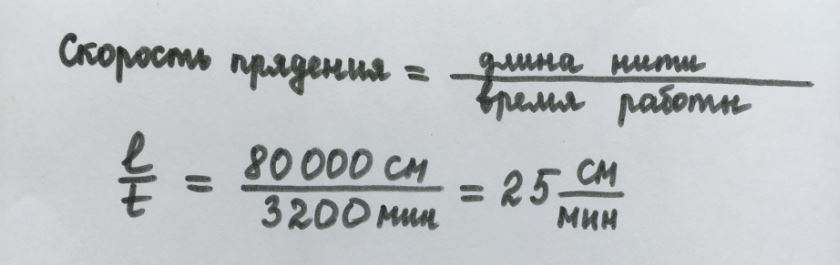 Скорость прядения = длина нити / время работы
l / t = 80 000 см / 3200 мин = 25 см / мин